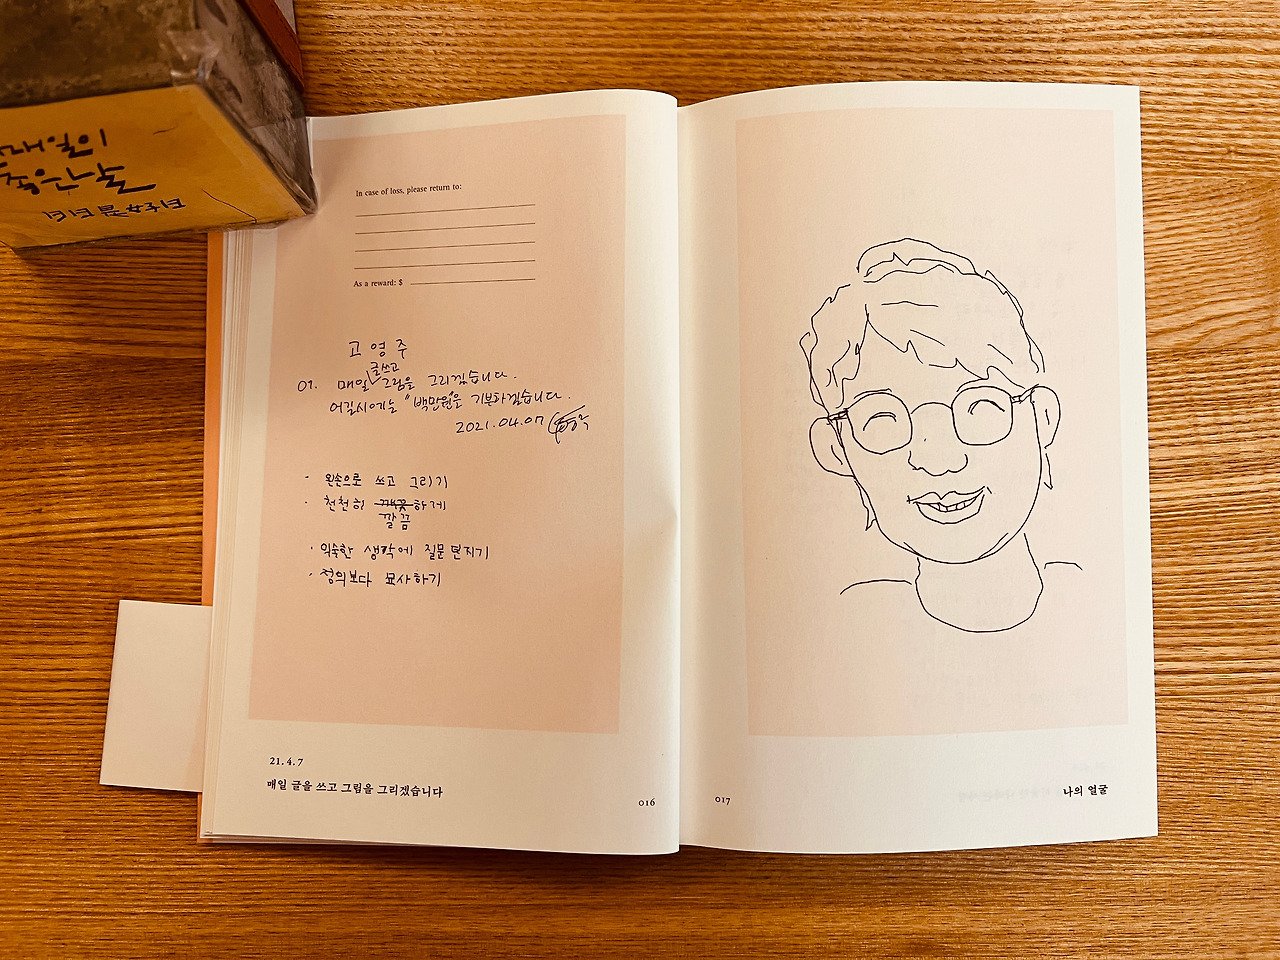 매일이
좋은날
日日是好日
In case of loss, please return to:
As a reward: $
고영주
글쓰고
01. 매일 그림을 그리겠습니다.
어길시에는 "백만원"을 기부하겠습니다.
2021.04.07
· 왼손으로 쓰고 그리기
· 천천히 하게
깔끔
· 익숙한 생각에 질문 던지기
· 정의보다 묘사하기
21.4.7
매일 글을 쓰고 그림을 그리겠습니다
016
017
나의 얼굴